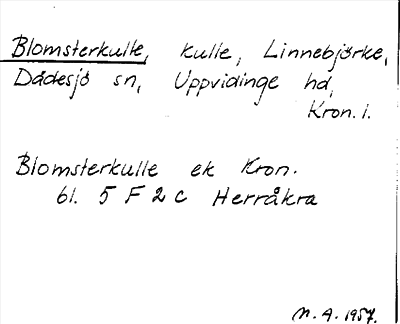 Blomsterkulle, kulle, Linnebjörke,
Dädesjö sn, Uppvidinge hd,
Kron. l.
Blomsterkulle ek Kron.
bl. 5 F 2 c Herråkra
M. A. 1957.